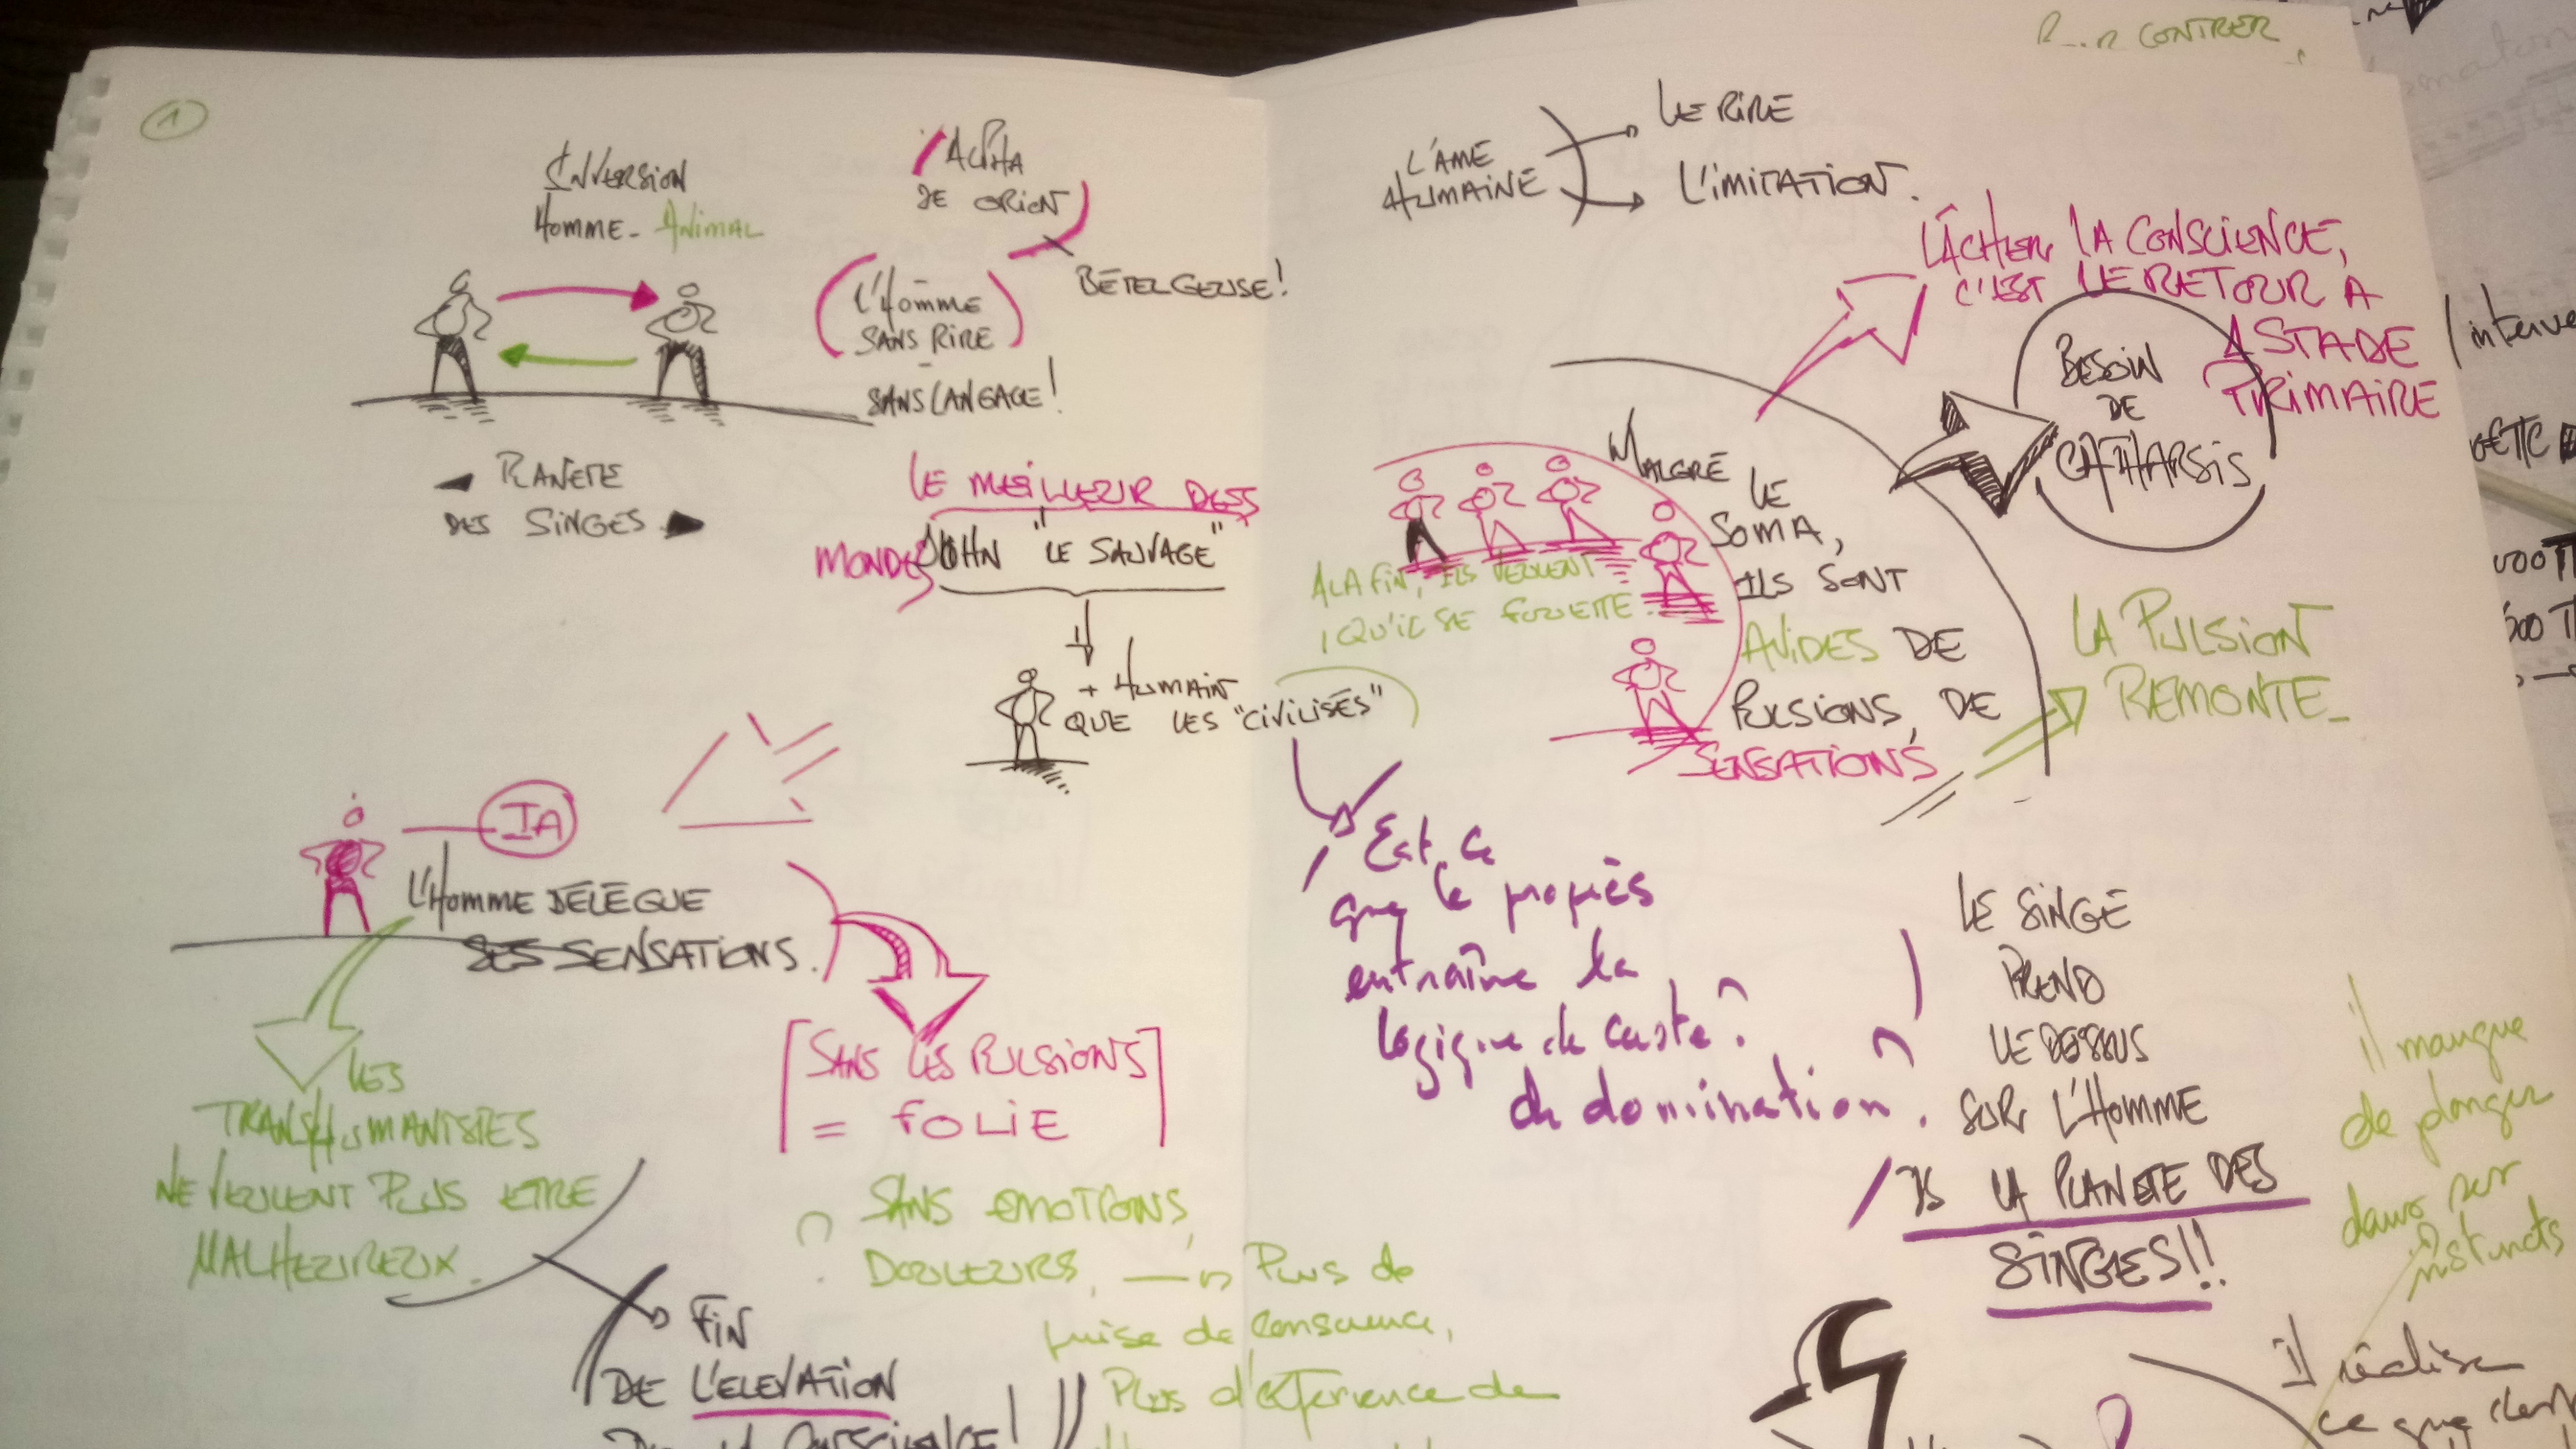 1
INVERSION
HOMME - ANIMAL
ALPHA
DE ORION
BÉTELGEUSE !
L'HOMME
SANS RIRE
-
SANS LANGAGE !
PLANETE
DES SINGES
LE MEILLEUR DES
MONDES
JOHN "LE SAUVAGE"
+ HUMAIN
QUE LES "CIVILISÉS"
IA
L'HOMME DÉLÈGUE
SES SENSATIONS.
LES
TRANSHUMANISTES
NE VEULENT PLUS ETRE
MALHEUREUX.
SANS LES PULSIONS
= FOLIE
SANS EMOTIONS,
DOULEURS, → Plus de
prise de conscience,
Plus d'expérience de
FIN
DE L'ELEVATION
CONSCIENCE !
CONTRER
L'ÂME
HUMAINE
LE RIRE
L'IMITATION.
LÂCHER LA CONSCIENCE,
C'EST LE RETOUR A
1 STADE
PRIMAIRE
BESOIN
DE
CATHARSIS
MALGRÉ
LE
SOMA,
ILS SONT
AVIDES DE
PULSIONS, DE
SENSATIONS
A LA FIN, ILS VEULENT
QU'IL SE FOUETTE
LA PULSION
REMONTE_
Est ce
que le progrès
entraîne la
logique de caste ?
de domination ?
LE SINGE
PREND
LE DESSUS
SUR L'HOMME
DS LA PLANETE DES
SINGES !!
il manque
de plonger
dans ses
instincts
il réalise
ce que